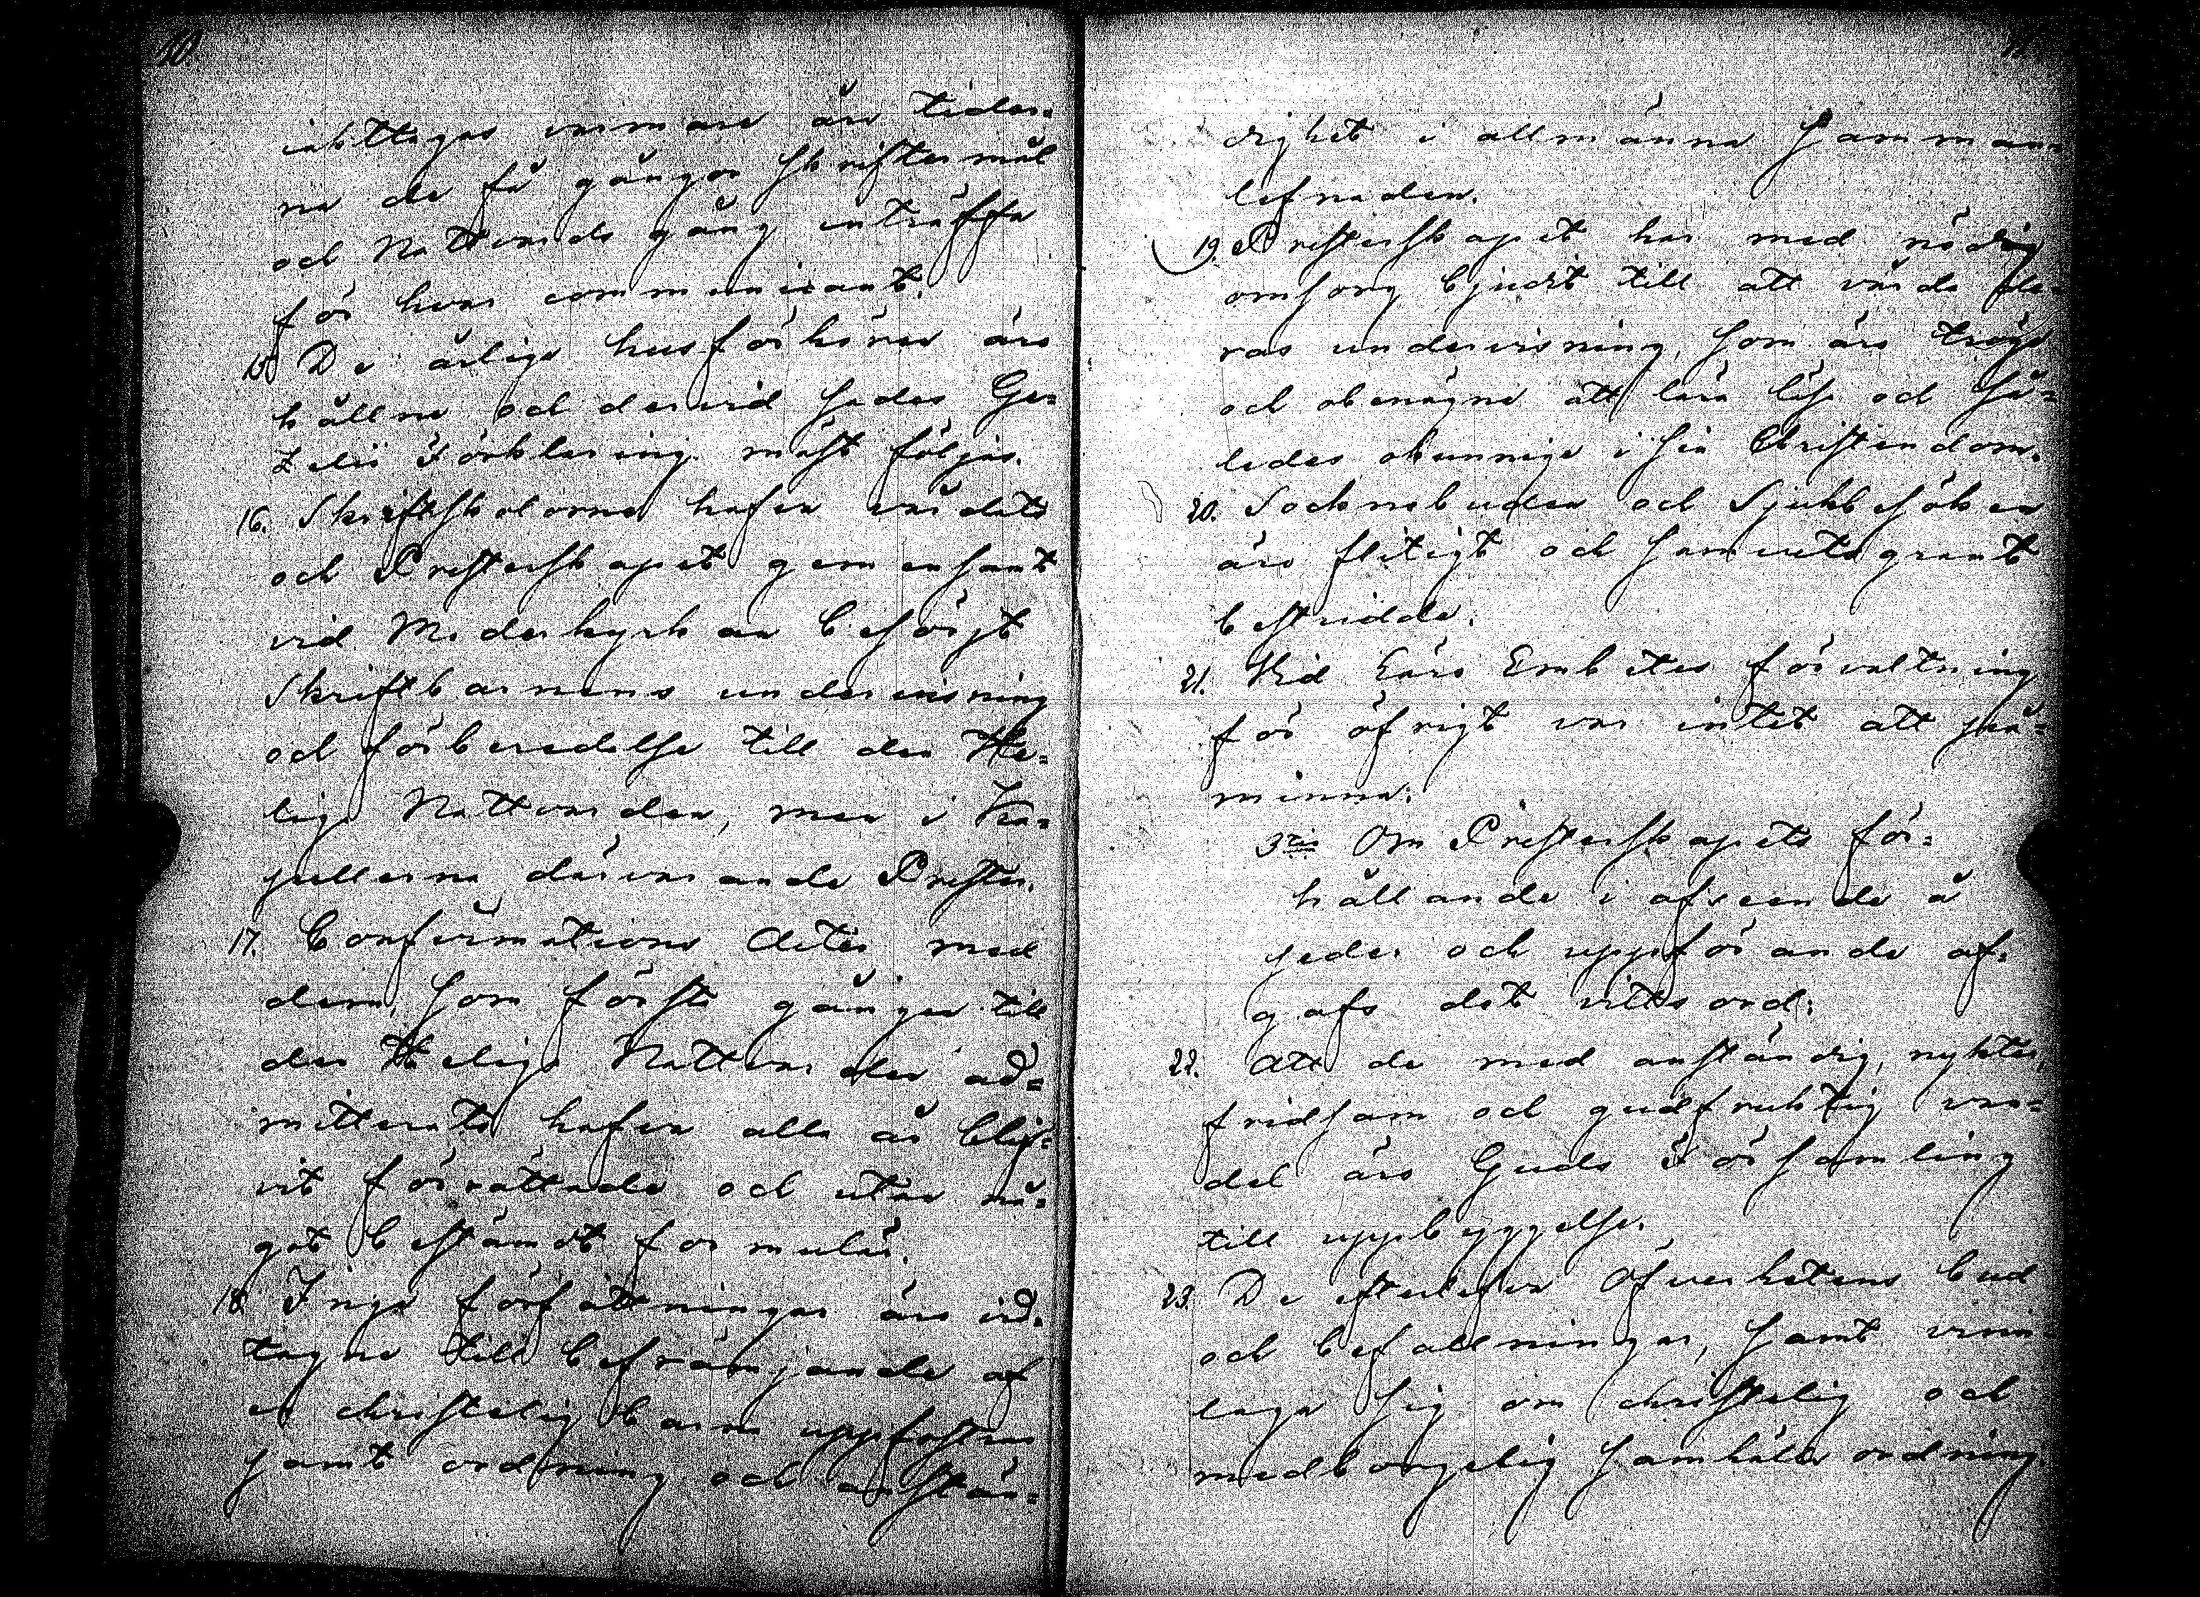 10.
iakttagas varmare än tider=
na de få gånger skriftermål
och Nattvards gång inträffa
för hvar communicant.
15 De årliga husförhören äro
hållne och dervid sades Ge=
zelii Förklaring mäst följas.
16. Skriftskolorna hafva vårdats
och Presterskapet gemensamt
vid Moderkyrkan besörjt
Skriftbarnens undervisning
och förberedelse till den He=
liga Nattvarden, men i Ka=
pellerna därvarande Prester.
17. Confirmations Acter med
dem, som första gången till
den Heliga Nattvarden ad=
mitterats hafva alla år blif=
vit förrättade och utan nå=
got bestämdt formulär.
18. Inga författningar äro vid=
tagne till befrämjande af
en christelig barna uppfostran
samt ordning och anstän=
11
dighet i allmänna samman=
lefnaden.
19. Presterskapet har med nödig
omsorg bjudit till att vårda de=
ras undervisning, som äro tröge
och obenägne att lära läsa och så=
ledes okunnige i sin Christendom.
20. Socknebuden och Sjukbesöken
äro flitigt och samvetsgrant
bestridde.
21. Vid Eårs Embetes förvaltning
för öfrigt var intet att på=
minna.
3:o Om Presterskapets för=
hållande i afseende å
seder och uppförande af=
gafs det vittsord:
22. Att de med anständig, nykter,
fridsam och gudfruktig van=
del äro Guds Församling
till uppbyggelse.
23. De efterlefva Öfverhetens bud
och befallningar, samt vinn=
laga sig om christelig och
medborgelig samhälls ordning